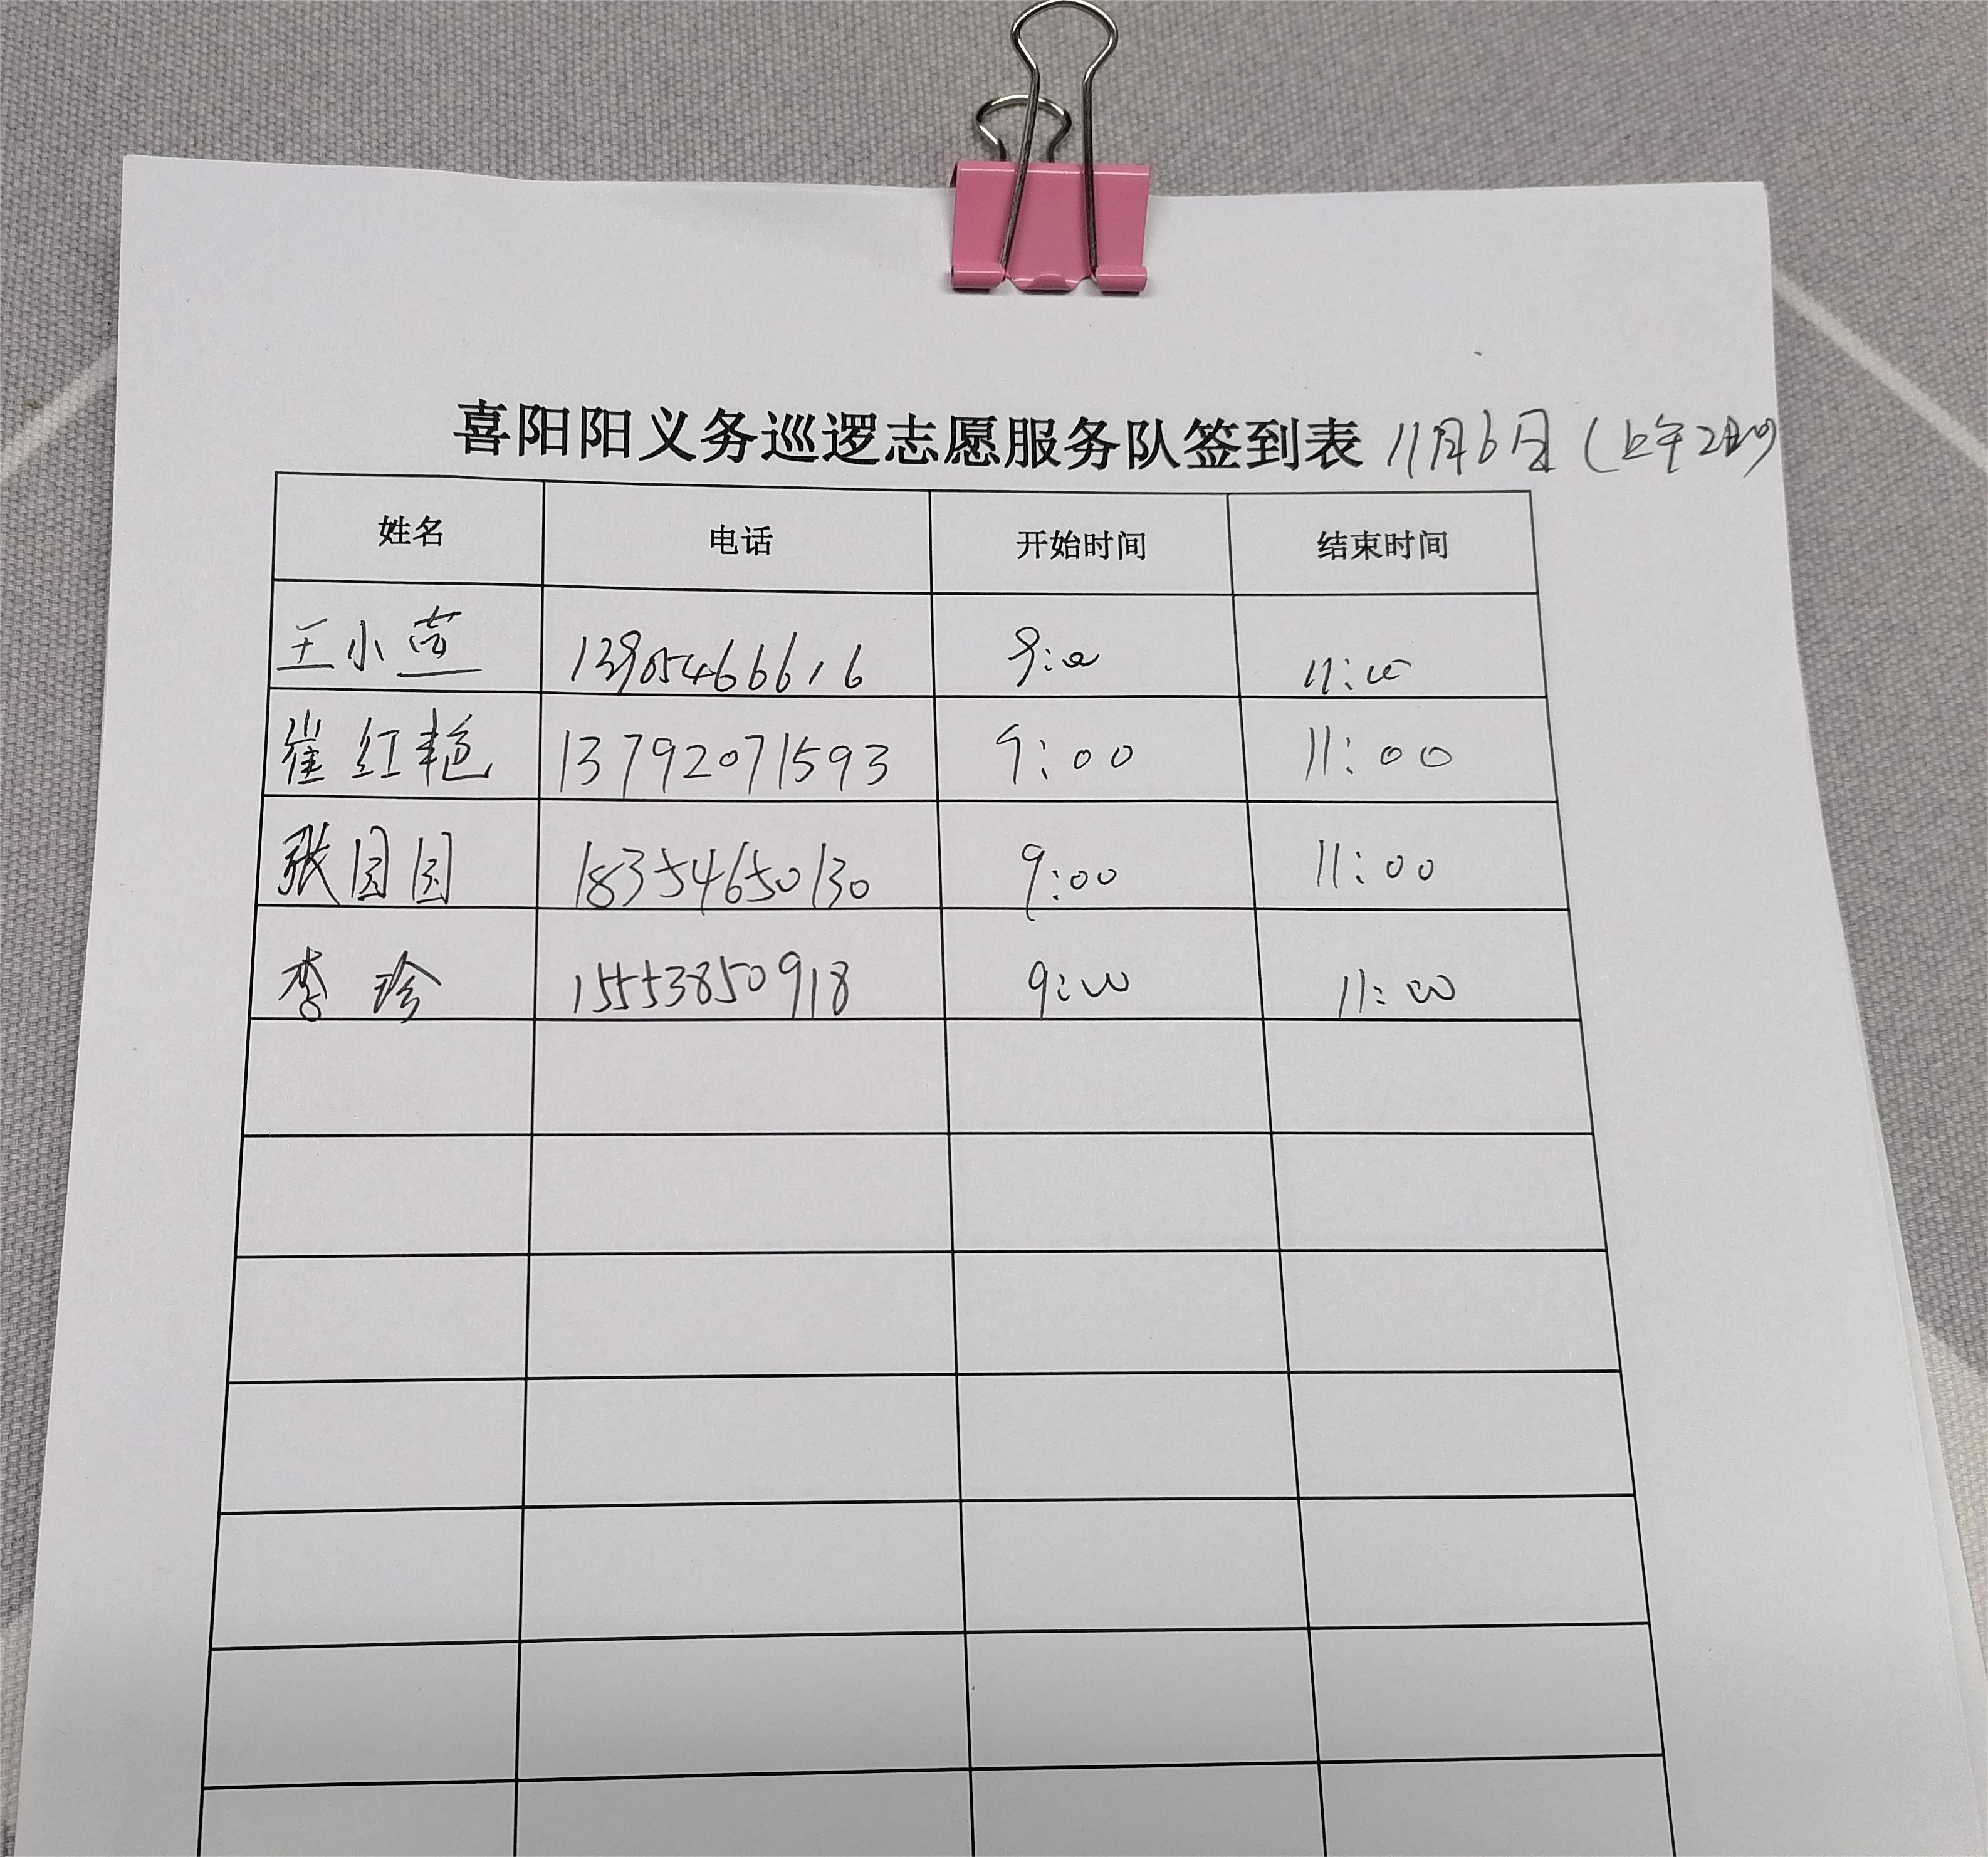 喜阳阳义务巡逻志愿服务队签到表 11月6日（上午2小时）
姓名 电话 开始时间 结束时间
王小 13905466616 9:00 11:00
崔红艳 13792071593 9:00 11:00
张园园 18354650130 9:00 11:00
李珍 15553850918 9:00 11:00